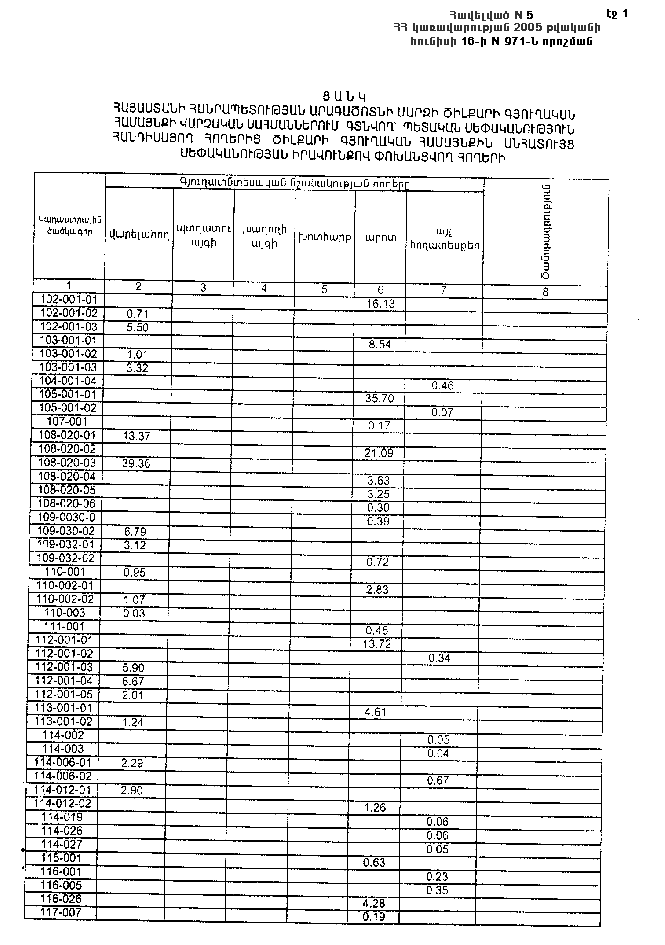 Հավելված N 5 էջ 1
ՀՀ կառավարության 2005 թվականի
հունիսի 16-ի N 971-Ն որոշման
ՑԱՆԿ
ՀԱՅԱՍՏԱՆԻ ՀԱՆՐԱՊԵՏՈՒԹՅԱՆ ԱՐԱԳԱԾՈՏՆԻ ՄԱՐԶԻ ԾԻԼՔԱՐԻ ԳՅՈՒՂԱԿԱՆ
ՀԱՄԱՅՆՔԻ ՎԱՐՉԱԿԱՆ ՍԱՀՄԱՆՆԵՐՈՒՄ ԳՏՆՎՈՂ՝ ՊԵՏԱԿԱՆ ՍԵՓԱԿԱՆՈՒԹՅՈՒՆ
ՀԱՆԴԻՍԱՑՈՂ ՀՈՂԵՐԻՑ ԾԻԼՔԱՐԻ ԳՅՈՒՂԱԿԱՆ ՀԱՄԱՅՆՔԻՆ ԱՆՀԱՏՈՒՅՑ
ՍԵՓԱԿԱՆՈՒԹՅԱՆ ԻՐԱՎՈՒՆՔՈՎ ՓՈԽԱՆՑՎՈՂ ՀՈՂԵՐԻ
Գյուղատնտեսական նշանակության հողերը
Կադաստրային ծածկագիր վարելահող պտղատու այգի խաղողի այգի խոտհարք արոտ այլ հողատեսքեր Ծանոթագրություն
1 2 3 4 5 6 7 8
102-001-01 16.13
102-001-02 0.71
102-001-03 5.50
103-001-01 8.54
103-001-02 1.01
103-001-03 3.32
104-001-04 0.46
105-001-01 35.70
105-001-02 0.07
107-001 0.17
108-020-01 13.37
108-020-02 21.09
108-020-03 39.36
108-020-04 3.63
108-020-05 3.25
108-020-06 0.30
109-0030-0 0.39
109-030-02 6.79
109-032-01 3.12
109-032-02 0.72
110-001 0.95
110-002-01 2.83
110-002-02 1.07
110-003 0.03
111-001 0.45
112-001-01 13.72
112-001-02 0.34
112-001-03 5.90
112-001-04 6.67
112-001-05 2.01
113-001-01 4.61
113-001-02 1.24
114-002
114-003 0.04
114-006-01 2.29
114-006-02 0.67
114-012-01 2.90
114-012-02 1.26
114-019 0.06
114-026 0.06
114-027 0.05
115-001 0.63
116-001 0.23
116-005 0.35
116-026 4.28
117-007 0.19